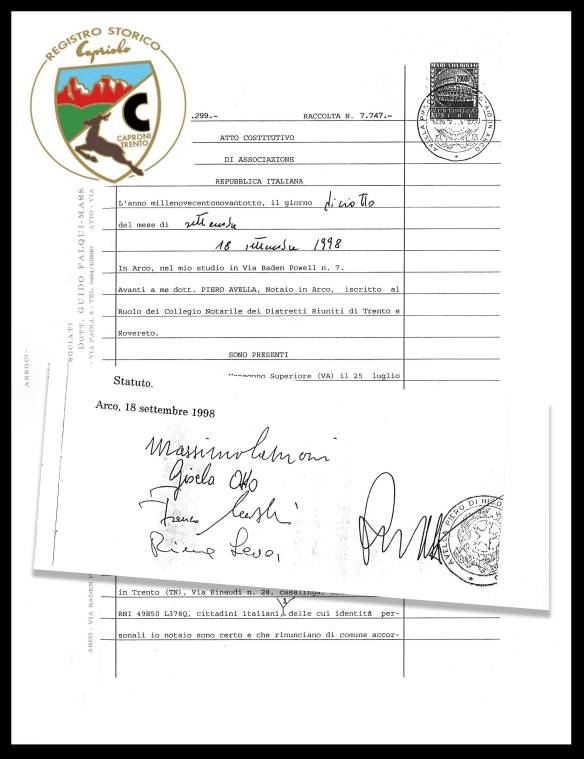 REGISTRO STORICO
Capriolo
C
CAPRONI
TRENTO
.299.-
RACCOLTA N. 7.747.-
MARCA DA BOLLO
ATTO COSTITUTIVO
DI ASSOCIAZIONE
REPUBBLICA ITALIANA
L'anno millenovecentonovantotto, il giorno diciotto
del mese di settembre
18 settembre 1998
In Arco, nel mio studio in Via Baden Powell n. 7.
Avanti a me dott. PIERO AVELLA, Notaio in Arco, iscritto al
Ruolo dei Collegio Notarile dei Distretti Riuniti di Trento e
Rovereto.
SONO PRESENTI
Superiore (VA) il 25 luglio
DOTT. GUIDO FALQUI-MASS
Statuto.
Arco, 18 settembre 1998
Gisela Otto
Franco
AVELLA PIERO DI
in Trento (TN), Via Einaudi n. 28, casalinga,
RNI 49B50 L378Q, cittadini italiani, delle cui identità per-
sonali io notaio sono certo e che rinunciano di comune accor-